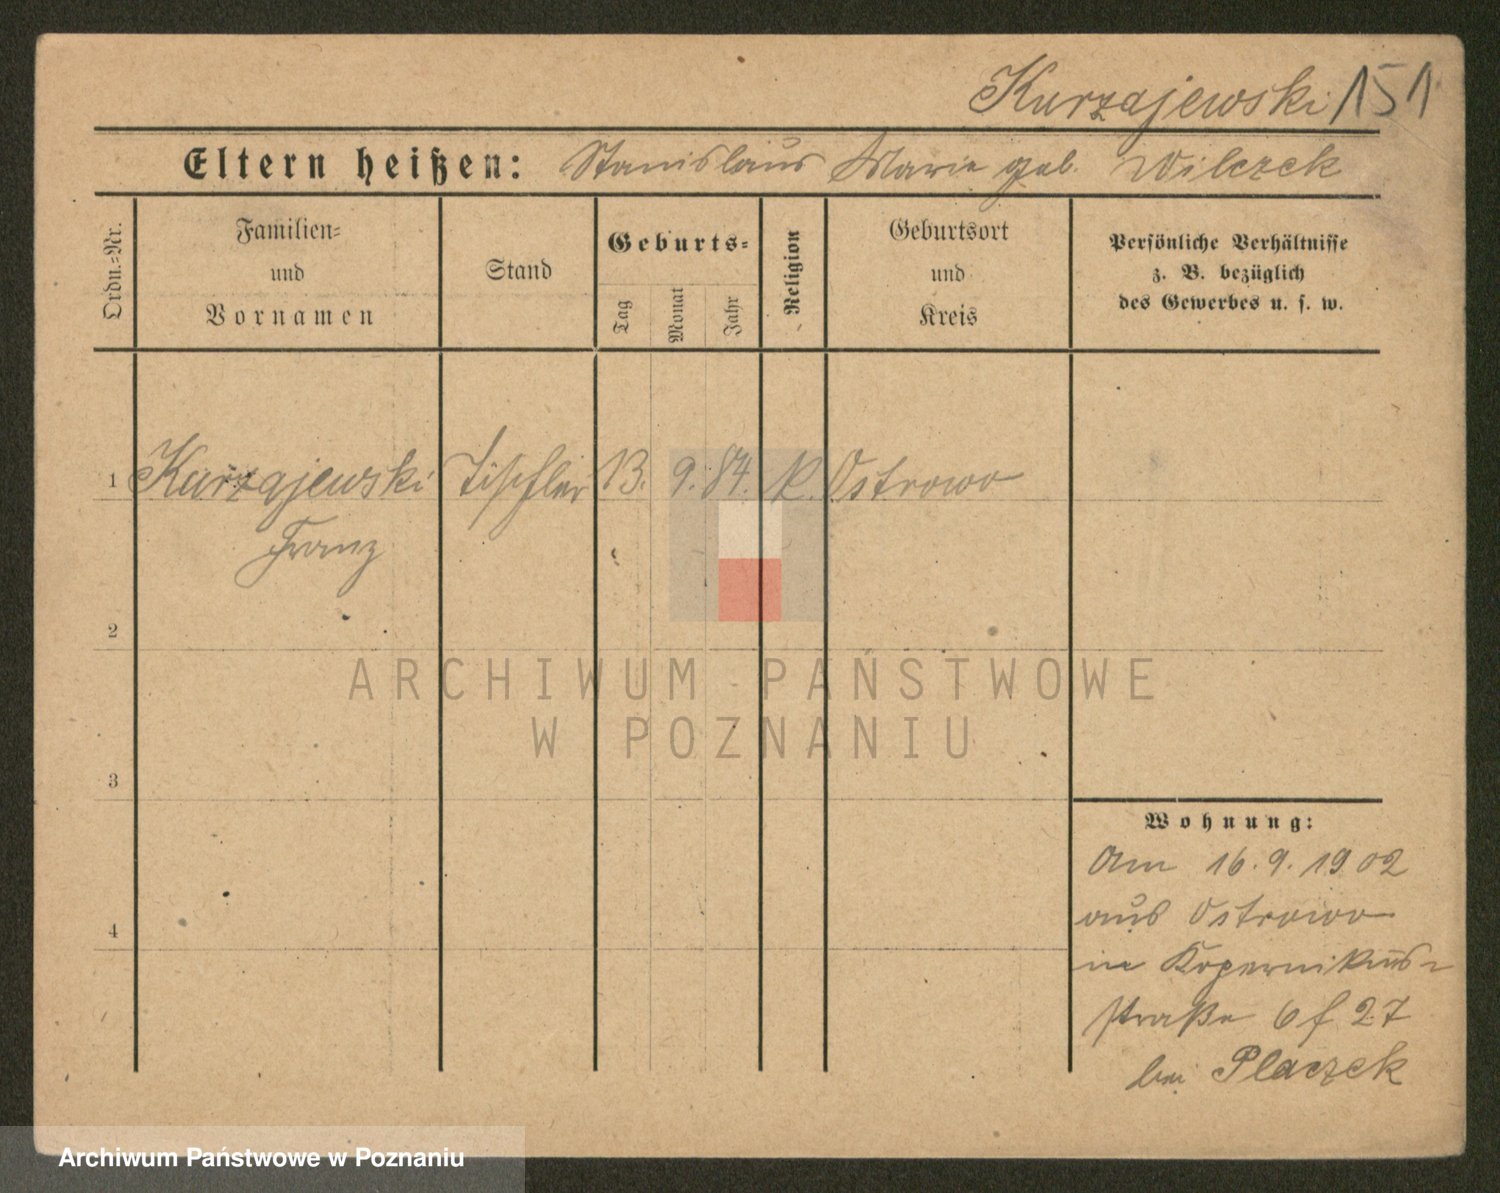 Kurzajewski 151
Eltern heißen: Stanislaus Marie geb. Wilczek
Ordn.-Nr.
Familien-
und
Vornamen
Stand
Geburts-
Tag
Monat
Jahr
Religion
Geburtsort
und
Kreis
Persönliche Verhältnisse
z. B. bezüglich
des Gewerbes u. s. w.
1 Kurzajewski Tischler 13. 9. 84. k. Ostrowo
Franz
2
3
4
Wohnung:
Am 16.9.1902
aus Ostrowo
in Kopernikus-
straße 6 f 27
bei Placzek
ARCHIWUM PAŃSTWOWE
W POZNANIU
Archiwum Państwowe w Poznaniu